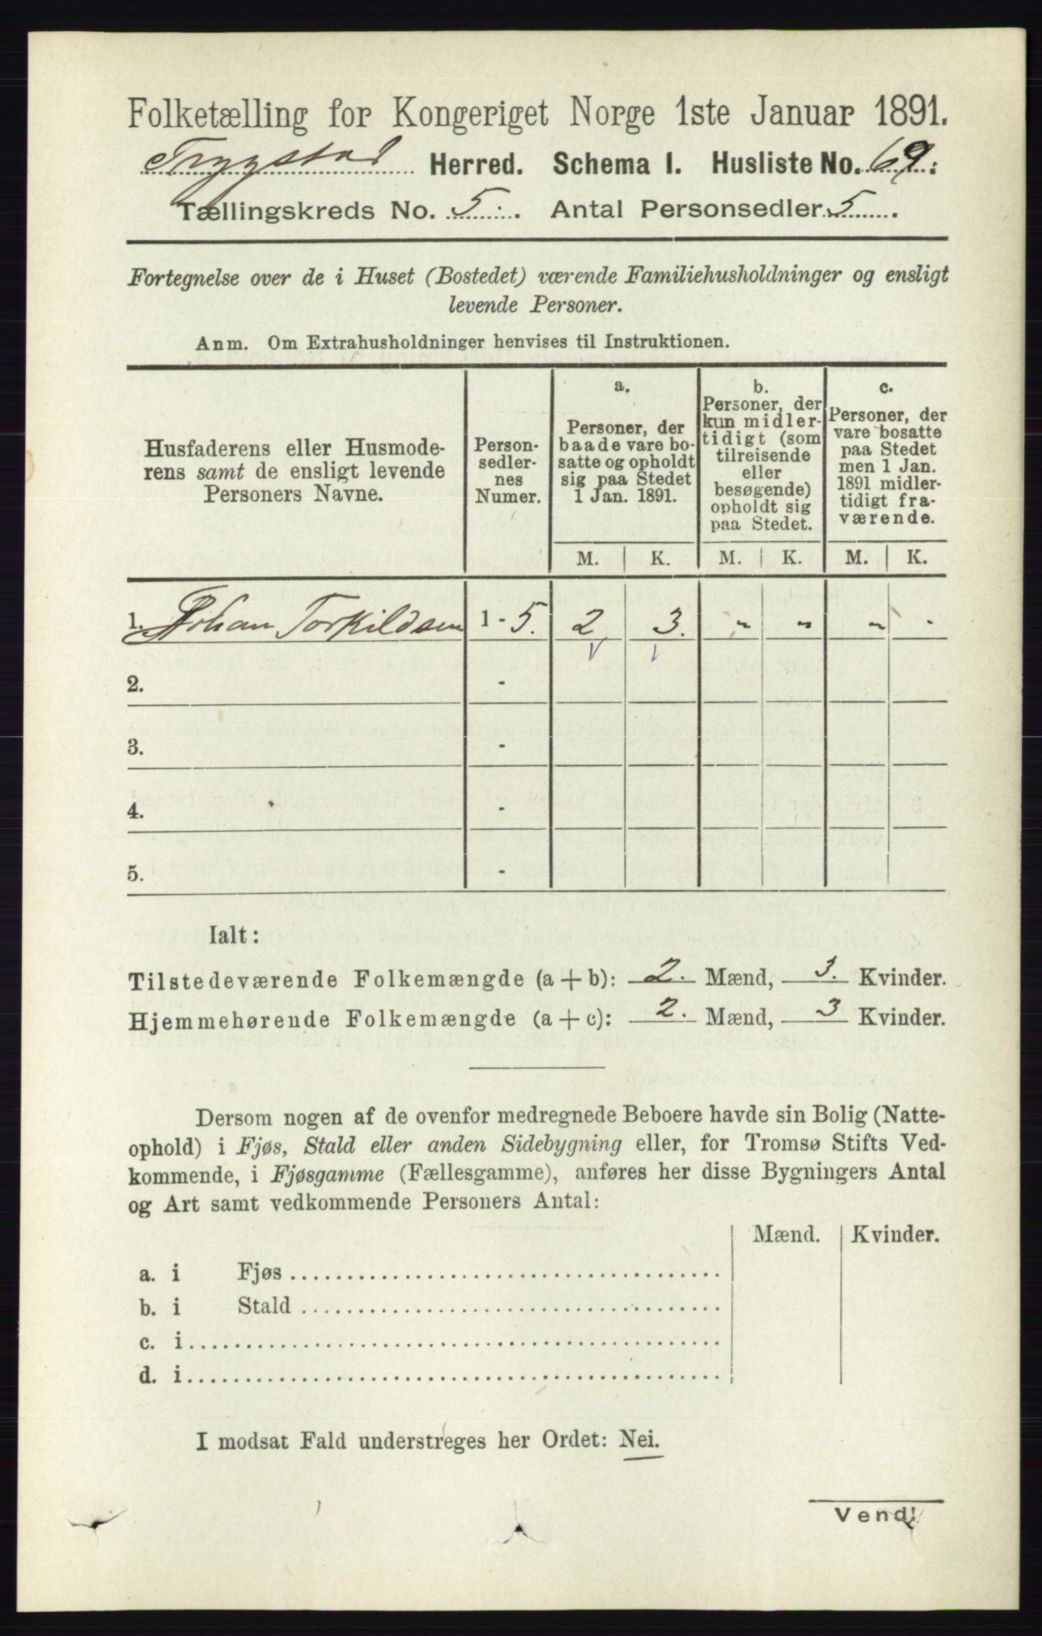 Folketælling for Kongeriget Norge 1ste Januar 1891.
Trygstad Herred. Schema I. Husliste No. 69.
Tællingskreds No. 5. Antal Personsedler 5.
Fortegnelse over de i Huset (Bostedet) værende Familiehusholdninger og ensligt
levende Personer.
Anm. Om Extrahusholdninger henvises til Instruktionen.
Husfaderens eller Husmode-
rens samt de ensligt levende
Personers Navne.
Person-
sedler-
nes
Numer.
a.
Personer, der
baade vare bo-
satte og opholdt
sig paa Stedet
1 Jan. 1891.
b.
Personer, der
kun midler-
tidigt (som
tilreisende
eller
besøgende)
opholdt sig
paa Stedet.
c.
Personer, der
vare bosatte
paa Stedet
men 1 Jan.
1891 midler-
tidigt fra-
værende.
M. K. M. K. M. K.
1. Johan Torkildsen 1 - 5. 2 3. " " " -
2. -
3. -
4. -
5. -
Ialt:
Tilstedeværende Folkemængde (a + b): 2. Mænd, 3. Kvinder.
Hjemmehørende Folkemængde (a + c): 2. Mænd, 3 Kvinder.
Dersom nogen af de ovenfor medregnede Beboere havde sin Bolig (Natte-
ophold) i Fjøs, Stald eller anden Sidebygning eller, for Tromsø Stifts Ved-
kommende, i Fjøsgamme (Fællesgamme), anføres her disse Bygningers Antal
og Art samt vedkommende Personers Antal:
Mænd. Kvinder.
a. i Fjøs
b. i Stald
c. i
d. i
I modsat Fald understreges her Ordet: Nei.
Vend!